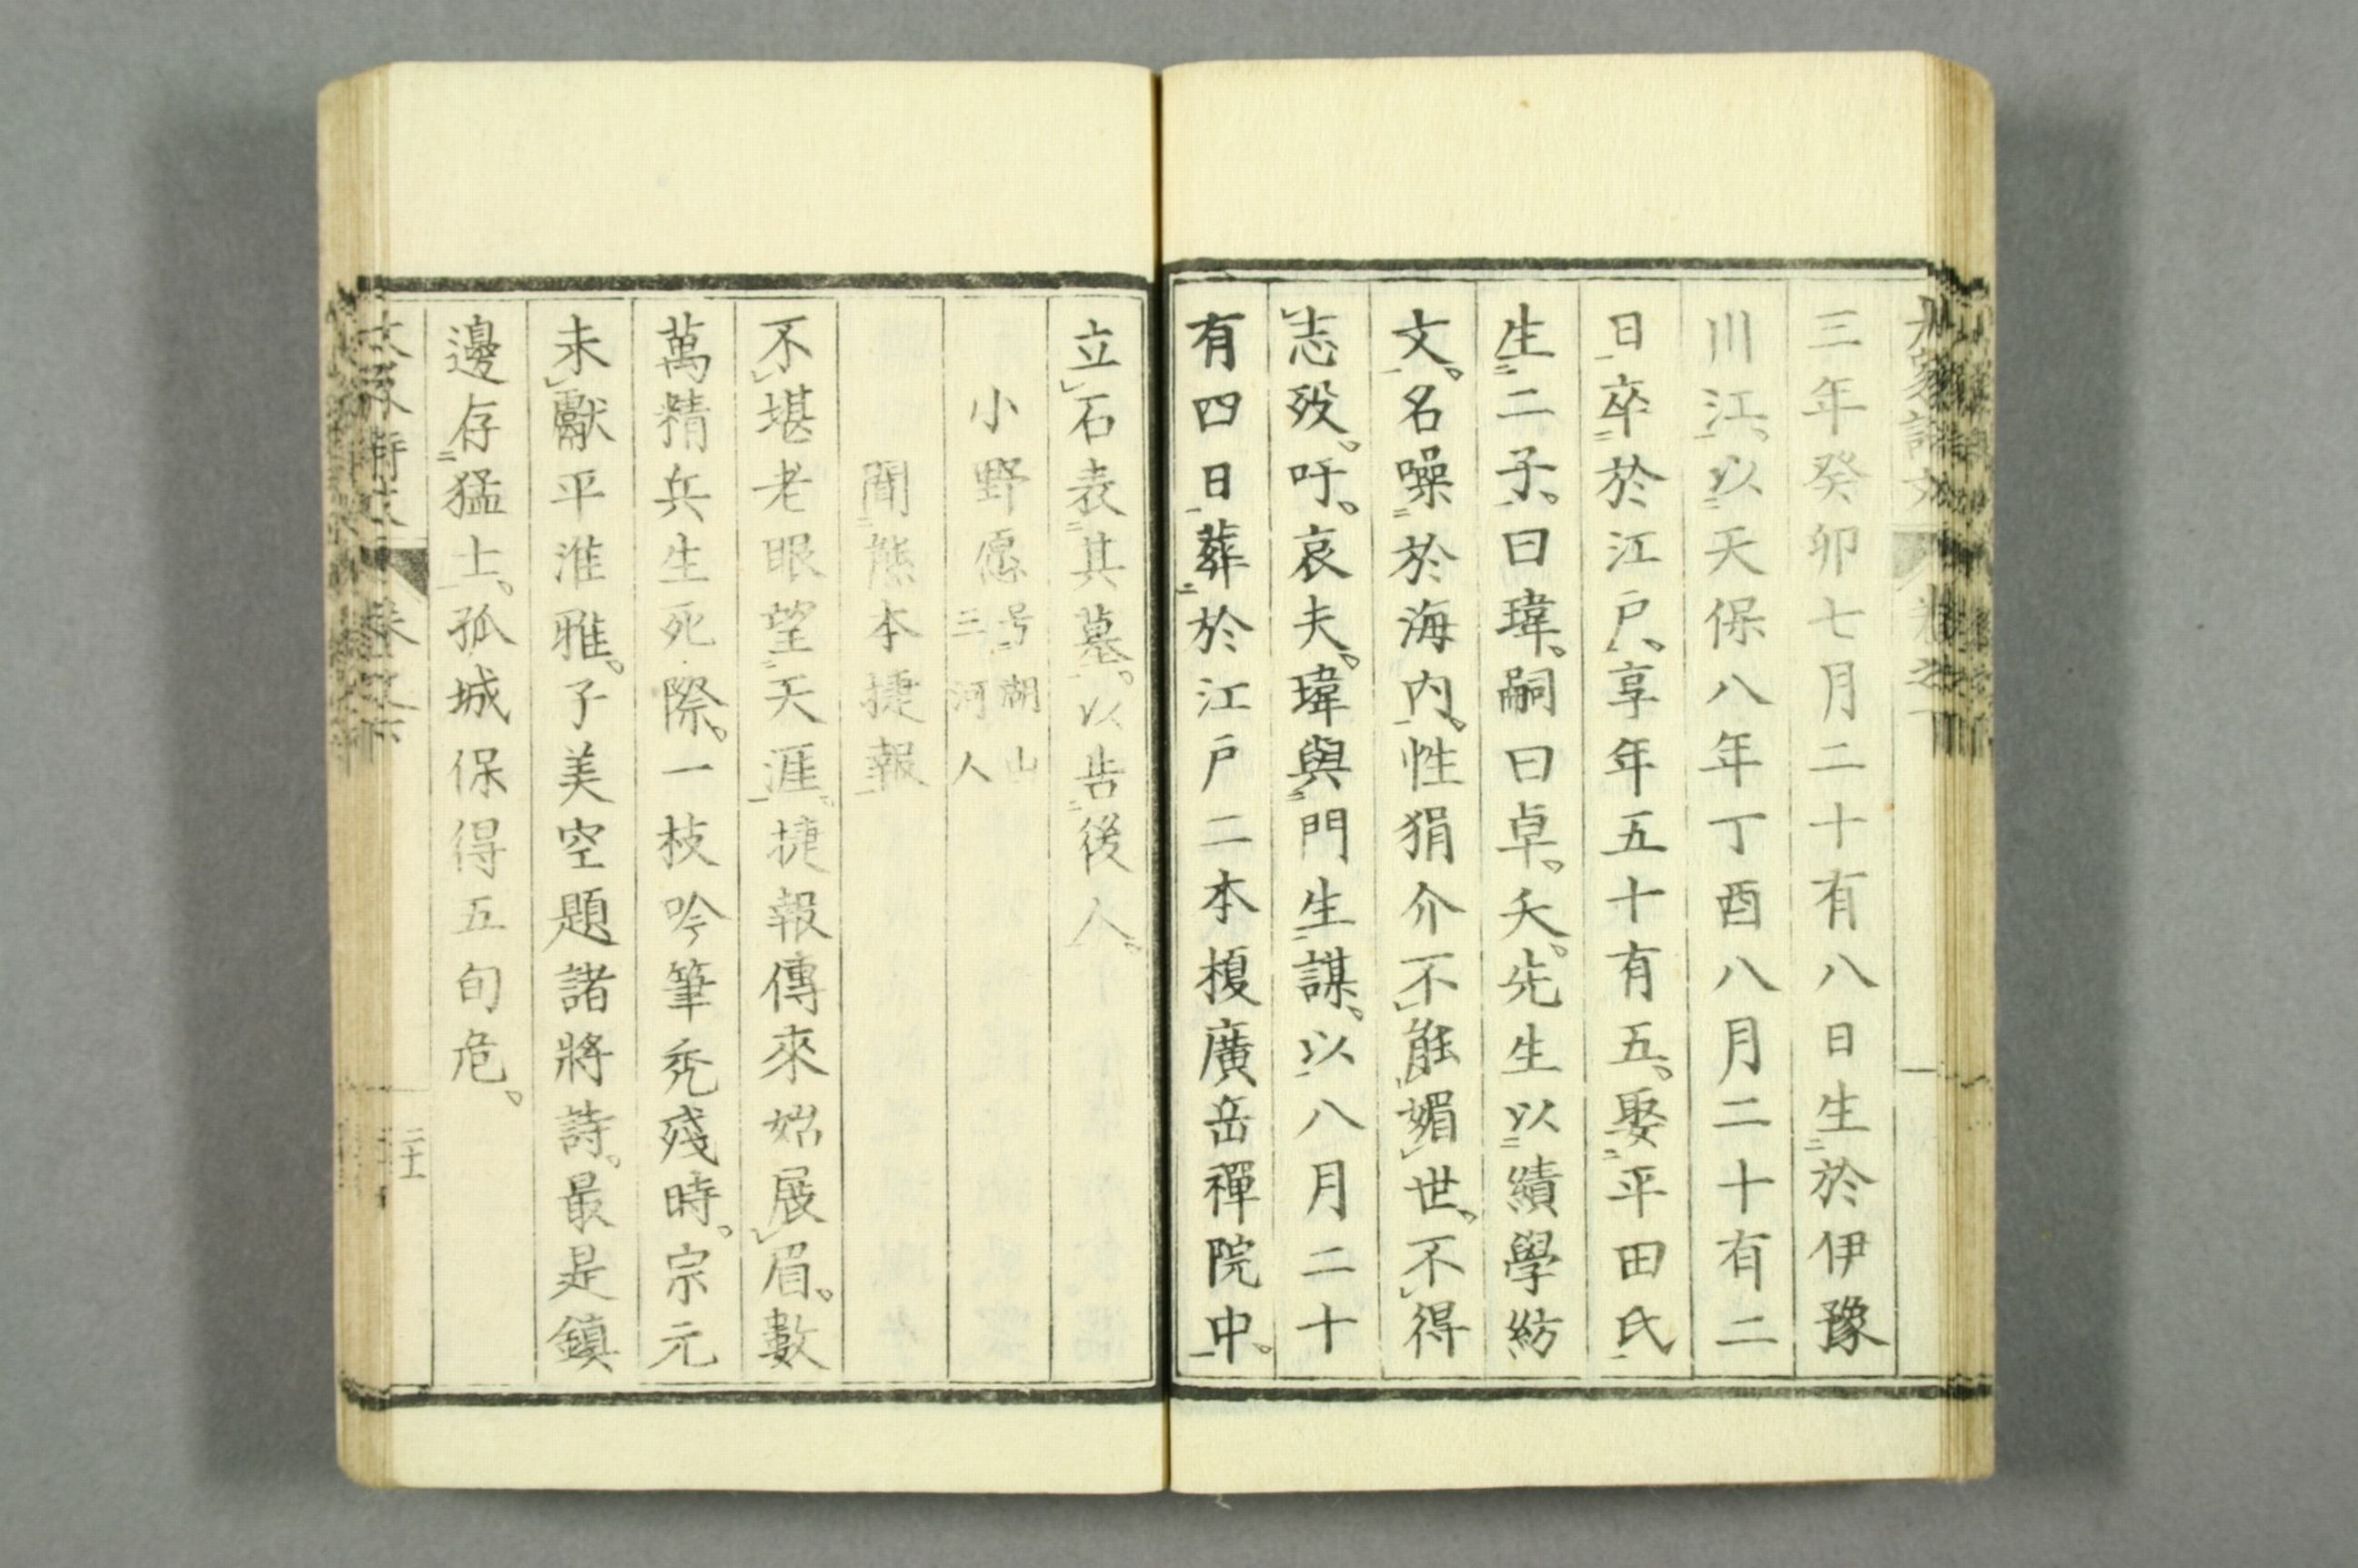 三年癸卯七月二十有八日生於伊豫
川江。以天保八年丁酉八月二十有二
日卒於江戶。享年五十有五。娶平田氏
生二子。曰瑋。嗣曰卓。夭。先生以績學紡
文。名噪於海内。性狷介不能媚世。不得
志歿。吁。哀夫。瑋與門生謀。以八月二十
有四日葬於江戶二本榎廣岳禪院中。
立石表其墓。以告後人。
小野愿 号湖山 三河人
聞熊本捷報
不堪老眼望天涯。捷報傳來始展眉。數
萬精兵生死際。一枝吟筆禿殘時。宗元
未獻平淮雅。子美空題諸將詩。最是鎮
邊存猛士。孤城保得五旬危。
二十一